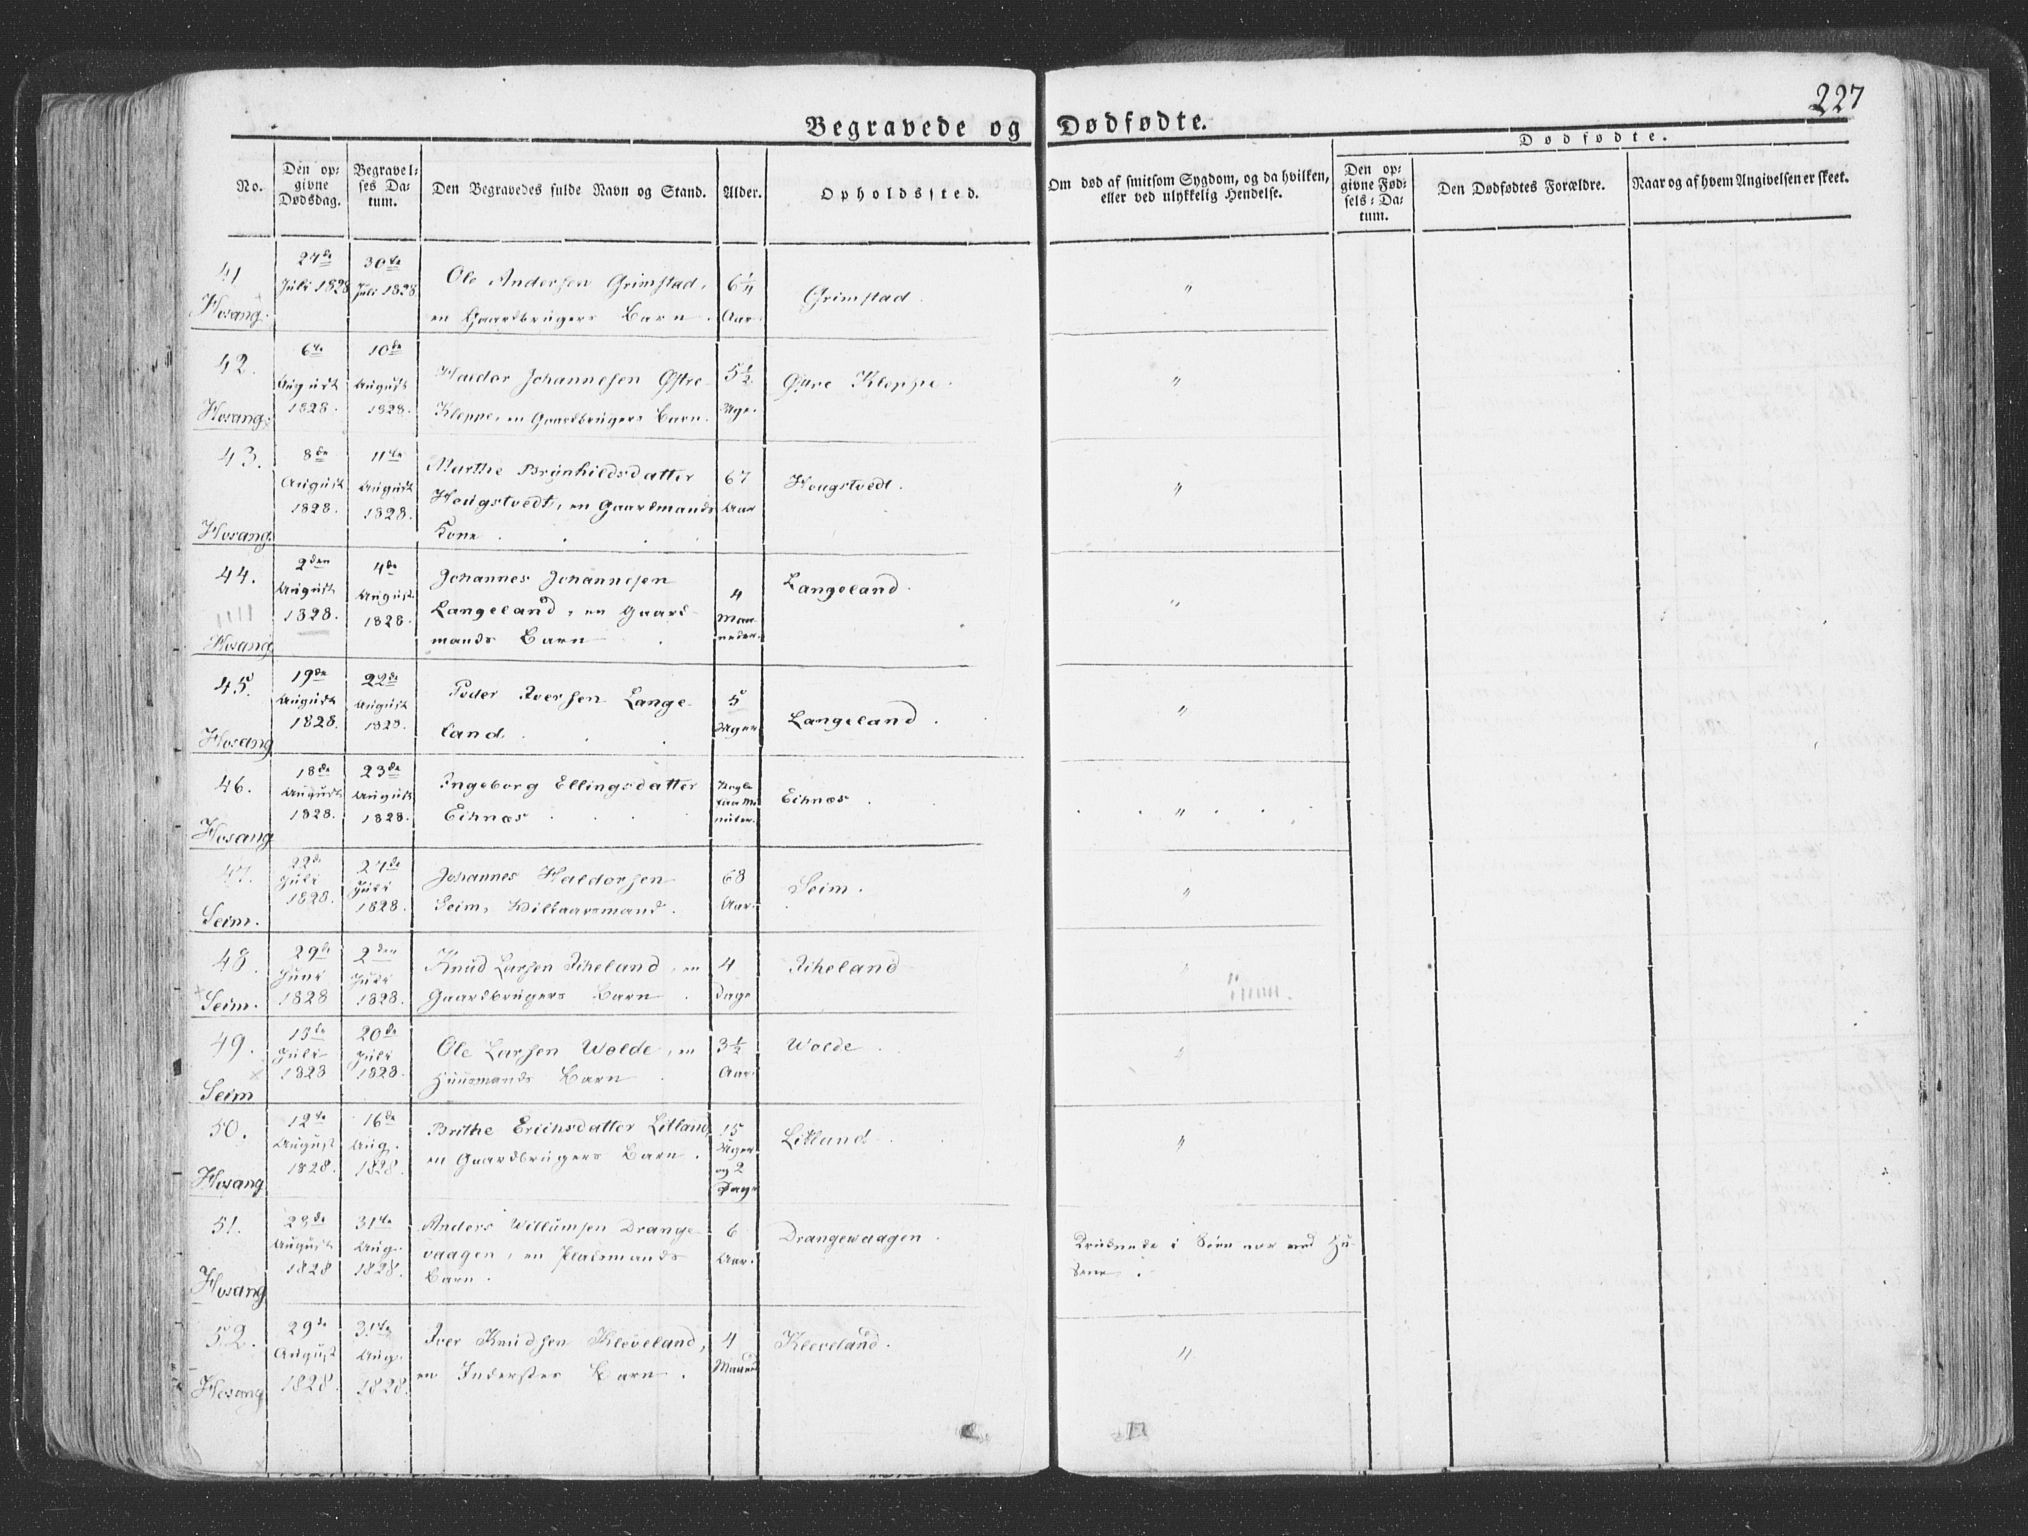 227
Begravede og Dødfødte.
Dødfødte.
No.
Den opgivne Dødsdag.
Begravelses Datum.
Den Begravedes fulde Navn og Stand.
Alder.
Opholdssted.
Om død af smitsom Sygdom, og da hvilken, eller ved ulykkelig Hendelse.
Den opgivne Fødsels-Datum.
Den Dødfødtes Forældre.
Naar og af hvem Angivelsen er skeet.
41 Hosang. 27de Juli 1828 30de Juli 1828 Ole Andersen Grimstad, 6 1/4 Grimstad. "
en Gaardbrugers Barn. Aar.
42. Hosang. 6te August 1828. 10de August 1828. Haldor Johannesen Østre 5 1/2 Østre Kleppe. "
Kleppe, en Gaardbrugers Barn. Uge.
43. Hosang. 8de August 1828. 11te August 1828. Marthe Brynhildsdatter 67 Hougstvedt. "
Hougstvedt, en Gaardmands Aar
Kone.
44. Hosang 2den August 1828. 4de August 1828. Johannes Johannesen 4 Langeland. "
Langeland, en Gaard- Maa-
mands Barn neder.
45. Hosang 19de August 1828. 22de August 1828. Peder Iversen Lange- 5 Langeland. "
land. Uger
46. Hosang 18de August 1828. 23de August 1828. Ingeborg Ellingsdatter Eihnæs. "
Eihnæs. nuter.
47. Seim. 22de Juli 1828. 27de Juli 1828. Johannes Haldorsen 68 Seim. "
Seim, Wilkaarsmand. Aar.
48. Seim. 29de Juni 1828 2den Juli 1828. Knud Larsen Riheland, en 4 Riheland "
Gaardbrugers Barn. Dage
49. Seim 15de Juli 1828 20de Juli 1828. Ole Larsen Wolde, en 3 1/2 Wolde. "
Huusmands Barn. Aar.
50. Hosang 12te August 1828. 16de Aug. 1828. Brithe Erichsdatter Litland, 15 Litland. "
en Gaardbrugers Barn. Uger
og 2
Dage
51. Hosang 28de August 1828 31te Aug. 1828. Anders Willumsen Drange- 6 Drangewaagen. Druknede i Søen nær ved Hu-
vaagen, en Pladsmands Aar. sene.
Barn.
52. Hosang 29de August 1828. 31te Aug. 1828. Iver Knudsen Kleveland, 4 Kleveland. "
en Inderstes Barn. Maaned